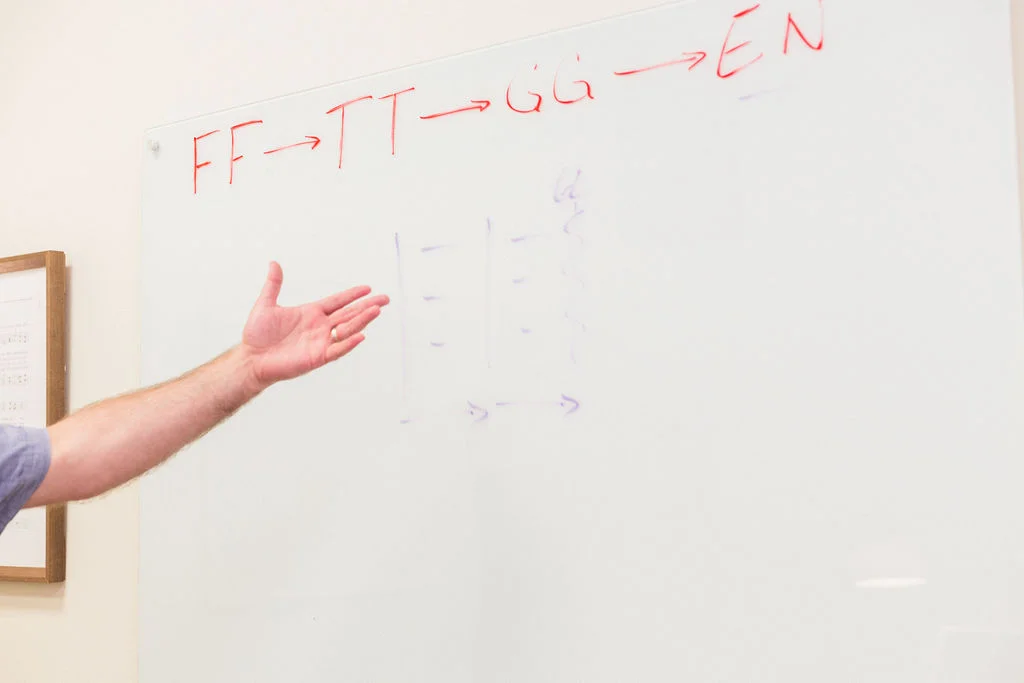 FF → TT → GG → EN